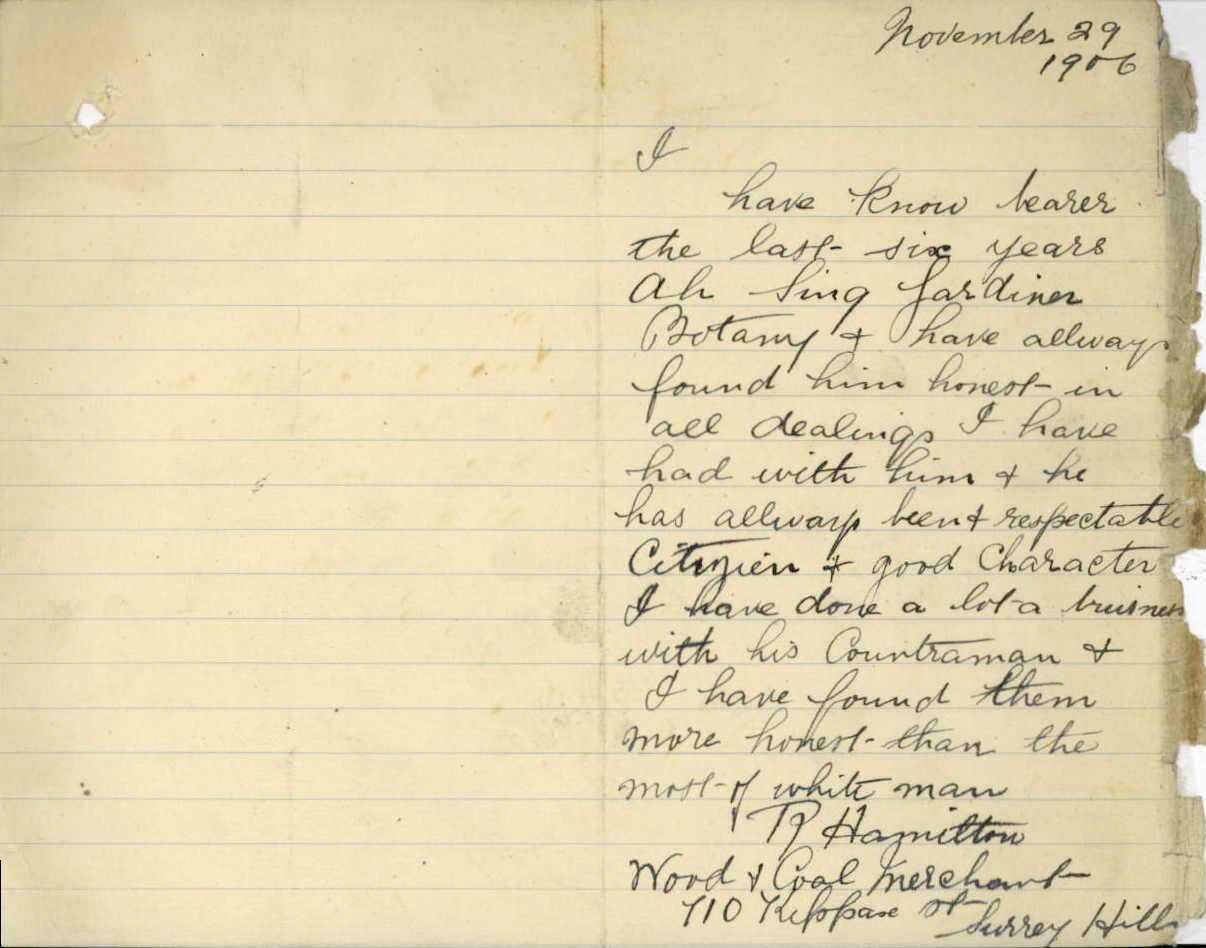 November 29
1906
I
have know bearer
the last six years
Ah Sing Gardiner
Botany & have allways
found him honest in
all dealings I have
had with him & he
has allways been & respectable
Citizien & good Character
I have done a lot a
with his Countraman &
I have found them
more honest than the
most of white man
Hamilton
Wood & Coal Merchant
110 Kippaxe St Surrey Hills